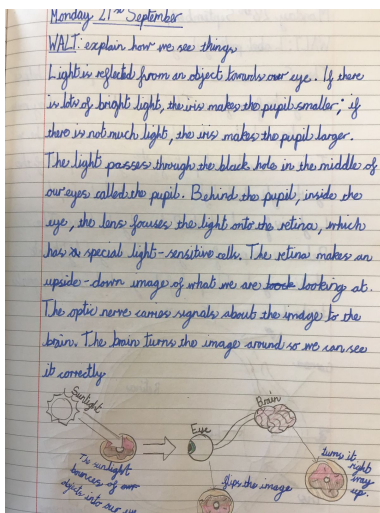 Monday 21st September
WALT: explain how we see things
Light is reflected from an object towards our eye. If there
is lots of bright light, the iris makes the pupil smaller; if
there is not much light, the iris makes the pupil larger.
The light passes through the black hole in the middle of
our eyes called the pupil. Behind the pupil, inside the
eye, the lens focuses the light onto the retina, which
has special light-sensitive cells. The retina makes an
upside-down image of what we are looking at.
The optic nerve carries signals about the image to the
brain. The brain turns the image around so we can see
it correctly
Sunlight
The sunlight
bounces of
objects into our
Eye
Brain
flips the image
turns it
right
way
up.